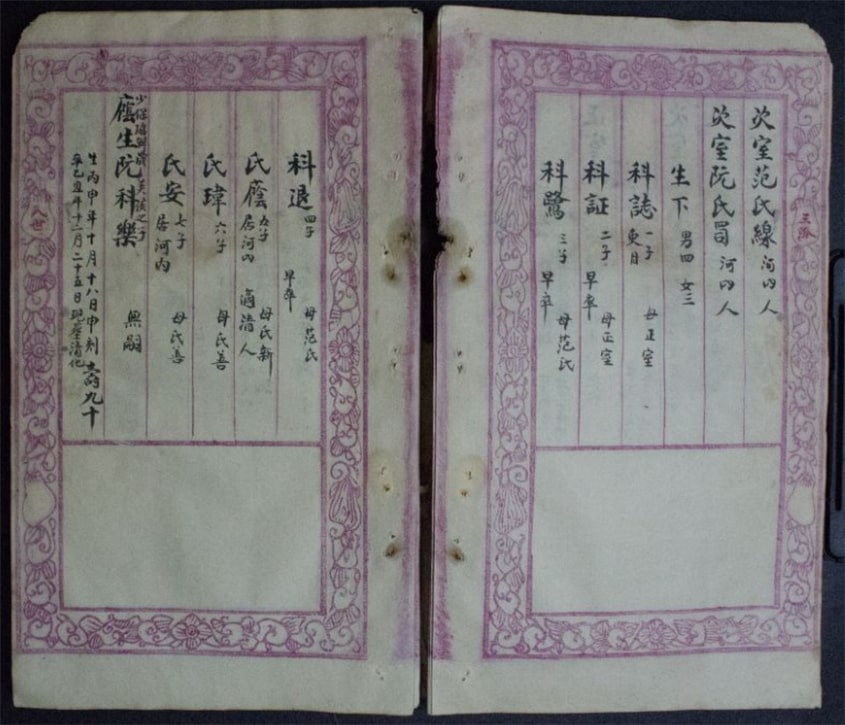 次室范氏線 河內人
次室阮氏蜀 河內人
生下 男四 女三
科誌 一子 吏目 母正室
科証 二子 早卒 母正室
科鷺 三子 早卒 母范氏
科退 四子 早卒 母范氏
氏蔭 五子 居河內 適清人 母氏新
氏瑋 六子 母氏善
氏安 七子 居河內 母氏善
蔭生阮科樂 無嗣
生丙申年十月十八日申刻 壽九十
辛巳年十二月二十五日 清化
八世